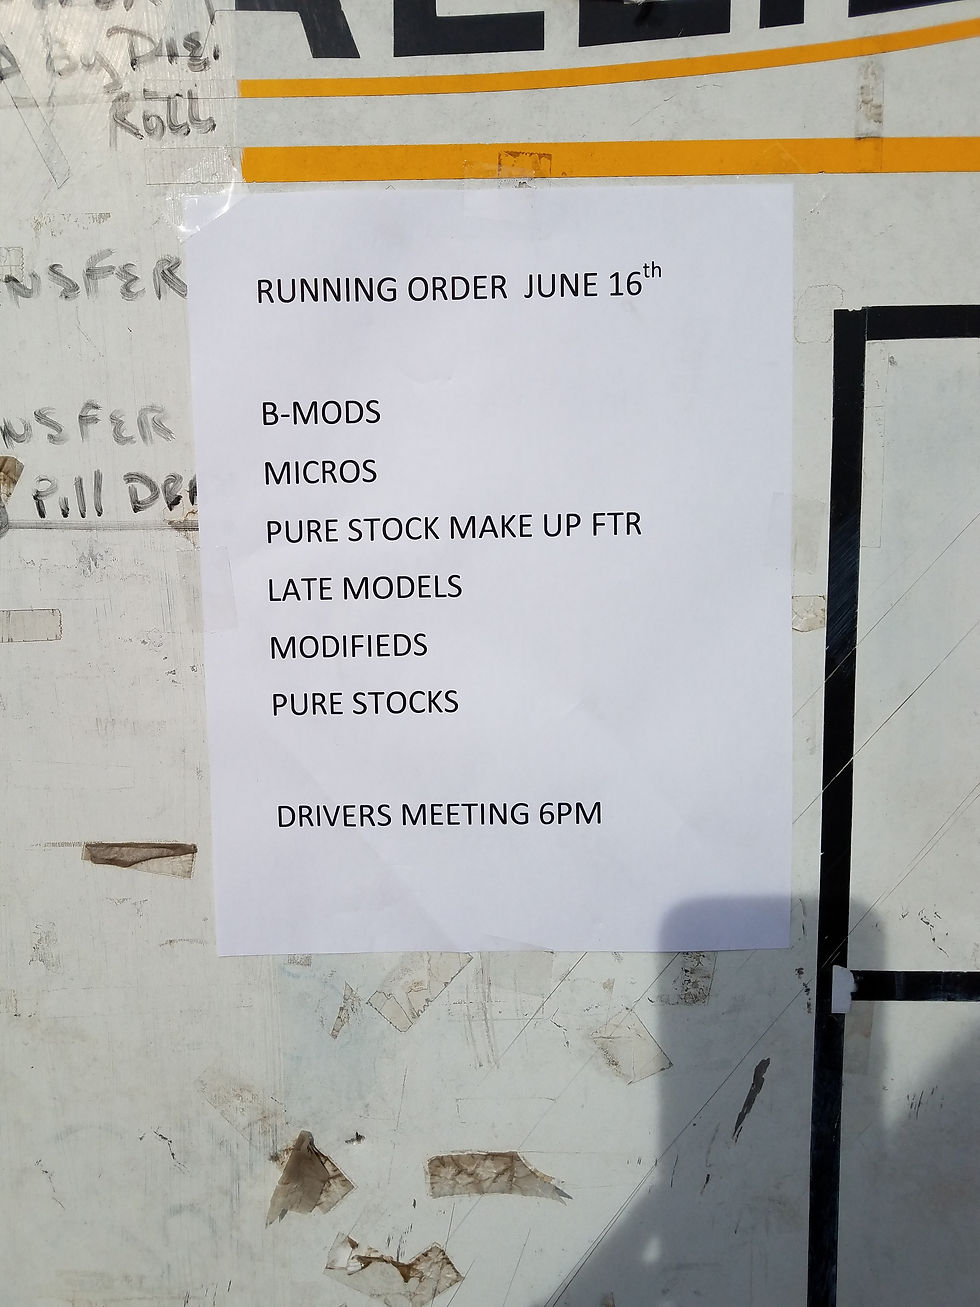 By Die
Roll
RUNNING ORDER JUNE 16th
B-MODS
MICROS
PURE STOCK MAKE UP FTR
LATE MODELS
MODIFIEDS
PURE STOCKS
DRIVERS MEETING 6PM
NSFER
NSFER
Pill